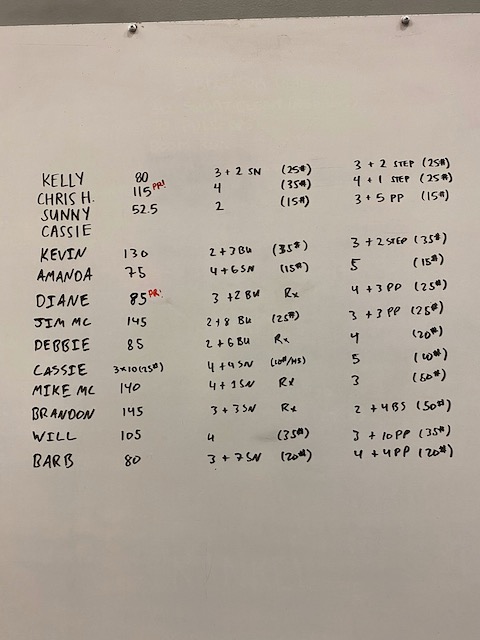 KELLY 80 3 + 2 SN (25#) 3 + 2 STEP (25#)
CHRIS H. 115 PR! 4 (35#) 4 + 1 STEP (25#)
SUNNY 52.5 2 (15#) 3 + 5 PP (15#)
CASSIE
KEVIN 130 2 + 7 BU (35#) 3 + 2 STEP (35#)
AMANDA 75 4 + 6 SN (15#) 5 (15#)
DIANE 85 PR! 3 + 2 BU Rx 4 + 3 PP (25#)
JIM MC 145 2 + 8 BU (25#) 3 + 3 PP (25#)
DEBBIE 85 2 + 6 BU Rx 4 (20#)
CASSIE 3x10 (25#) 4 + 4 SN (10#/HS) 5 (10#)
MIKE MC 140 4 + 1 SN Rx 3 (50#)
BRANDON 145 3 + 3 SN Rx 2 + 4 BS (50#)
WILL 105 4 (35#) 3 + 10 PP (35#)
BARB 80 3 + 7 SN (20#) 4 + 4 PP (20#)